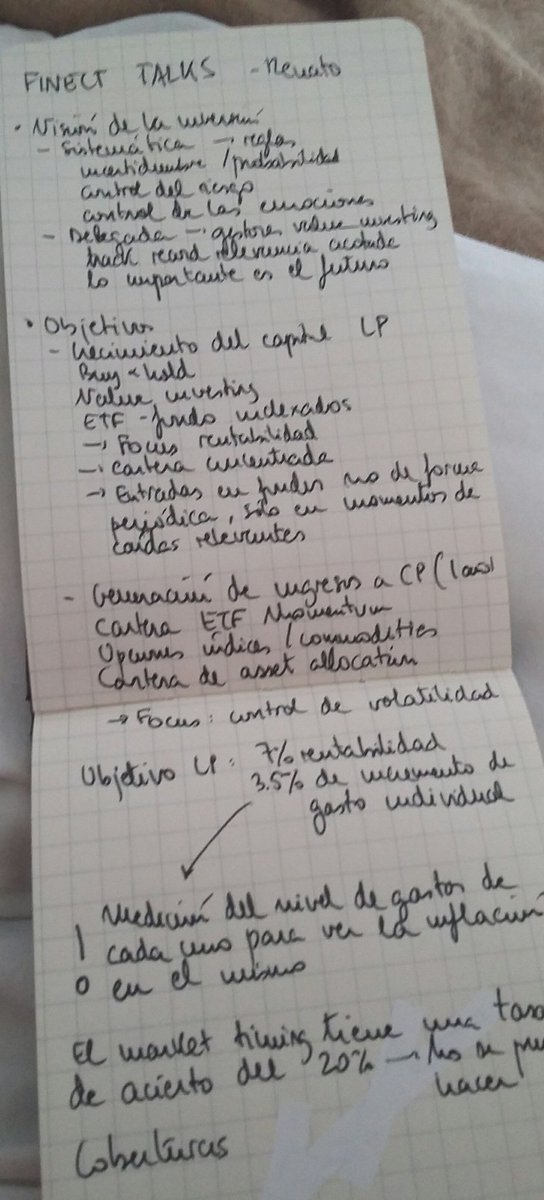 FINECT TALKS - Renato
• Visión de la inversión
- Sistemática → reglas
incertidumbre / probabilidad
control del riesgo
control de las emociones
- Delegada → gestores value investing
track record relevancia acotada
lo importante es el futuro
• Objetivos
- Crecimiento del capital LP
Buy & hold
Value investing
ETF - fondo indexados
→ Focus rentabilidad
→ cartera concentrada
→ Entradas en fondos no de forma
periódica, sólo en momentos de
caídas relevantes
- Generación de ingresos a CP (
Cartera ETF Momentum
Opciones índices / commodities
Cartera de asset allocation
→ Focus: control de volatilidad
Objetivo LP: 7% rentabilidad
3.5% de incremento de
gasto individual
Medición del nivel de gastos de
cada uno para ver la inflación
en el mismo
El market timing tiene una tasa
de acierto del 20% → No se
hacer
Coberturas